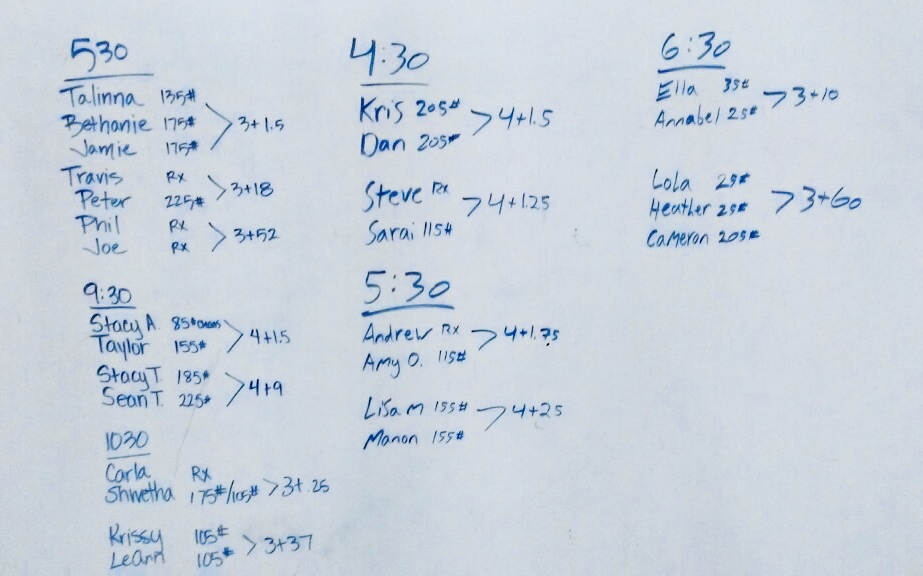 530
Talinna 135#
Bethanie 175# > 3+1.5
Jamie 175#
Travis Rx
Peter 225# > 3+18
Phil Rx
Joe Rx > 3+52
9:30
Stacy A. 85#
Taylor 155# > 4+1.5
Stacy T. 185#
Sean T. 225# > 4+9
1030
Carla Rx
Shwetha 175#/105# > 3+.25
Krissy 105#
LeAnn 105# > 3+37
4:30
Kris 205# > 4+1.5
Dan 205#
Steve Rx > 4+1.25
Sarai 115#
5:30
Andrew Rx > 4+1.75
Amy O. 115#
Lisa M 155# > 4+25
Manon 155#
6:30
Ella 35# > 3+10
Annabel 25#
Lola 25#
Heather 25# > 3+60
Cameron 205#